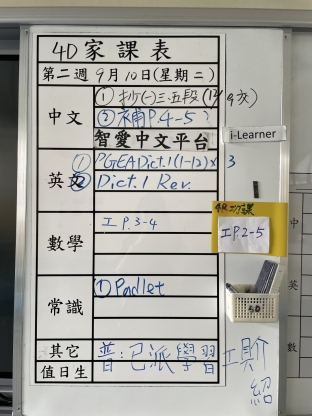 4D 家課表
第二週 9月10日(星期二)
中文
① 抄(一)三.五段
② 補P.4-5
智愛中文平台
i-Learner
英文
① PGEADict.1(1-12)x 3
② Dict.1 Rev.
數學
工 P.3-4
工P.2-5
常識
① Padlet
4D
其它
普:已派學習工具介紹
值日生
中
英
數